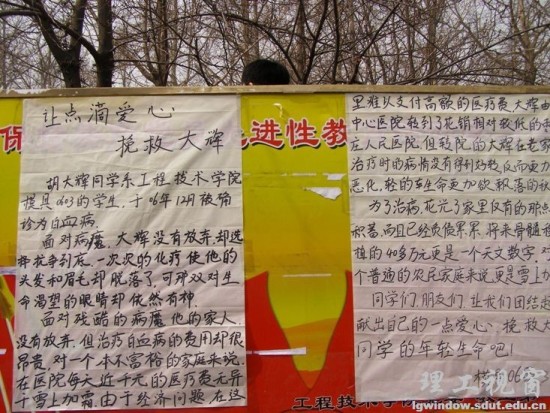 让点滴爱心
挽救大辉
胡大辉同学系工程技术学院
模具0603的学生，于06年12月被确
诊为白血病。
面对病魔，大辉没有放弃，却选
择抗争到底，一次次的化疗使他的
头发和眉毛却脱落了，可那双对生
命渴望的眼睛却依然有神。
面对残酷的病魔他的家人
没有放弃，但治疗白血病的费用却很
昂贵，对一个本不富裕的家庭来说，
在医院每天近千元的医疗费无异
于雪上加霜，由于经济问题，在这
里难以支付高额的医疗费，大辉由
中心医院转到了花销相对较低的
左人民医院，但转院的大辉在老家
治疗时的病情没有得到好转，反而更加
恶化，年轻的生命更加
为了治病，花光了家里仅有的那点
积蓄，而且已经负债累累，将来骨髓移
植的40多万元更是一个天文数字，对
个普通的农民家庭来说更是雪上加
同学们，朋友们，让我们团结起
献出自己的一点爱心，挽救大
同学的年轻生命吧！
模具06
保
先进性教
工程技术学院
理工视窗
lgwindow.sdut.edu.cn